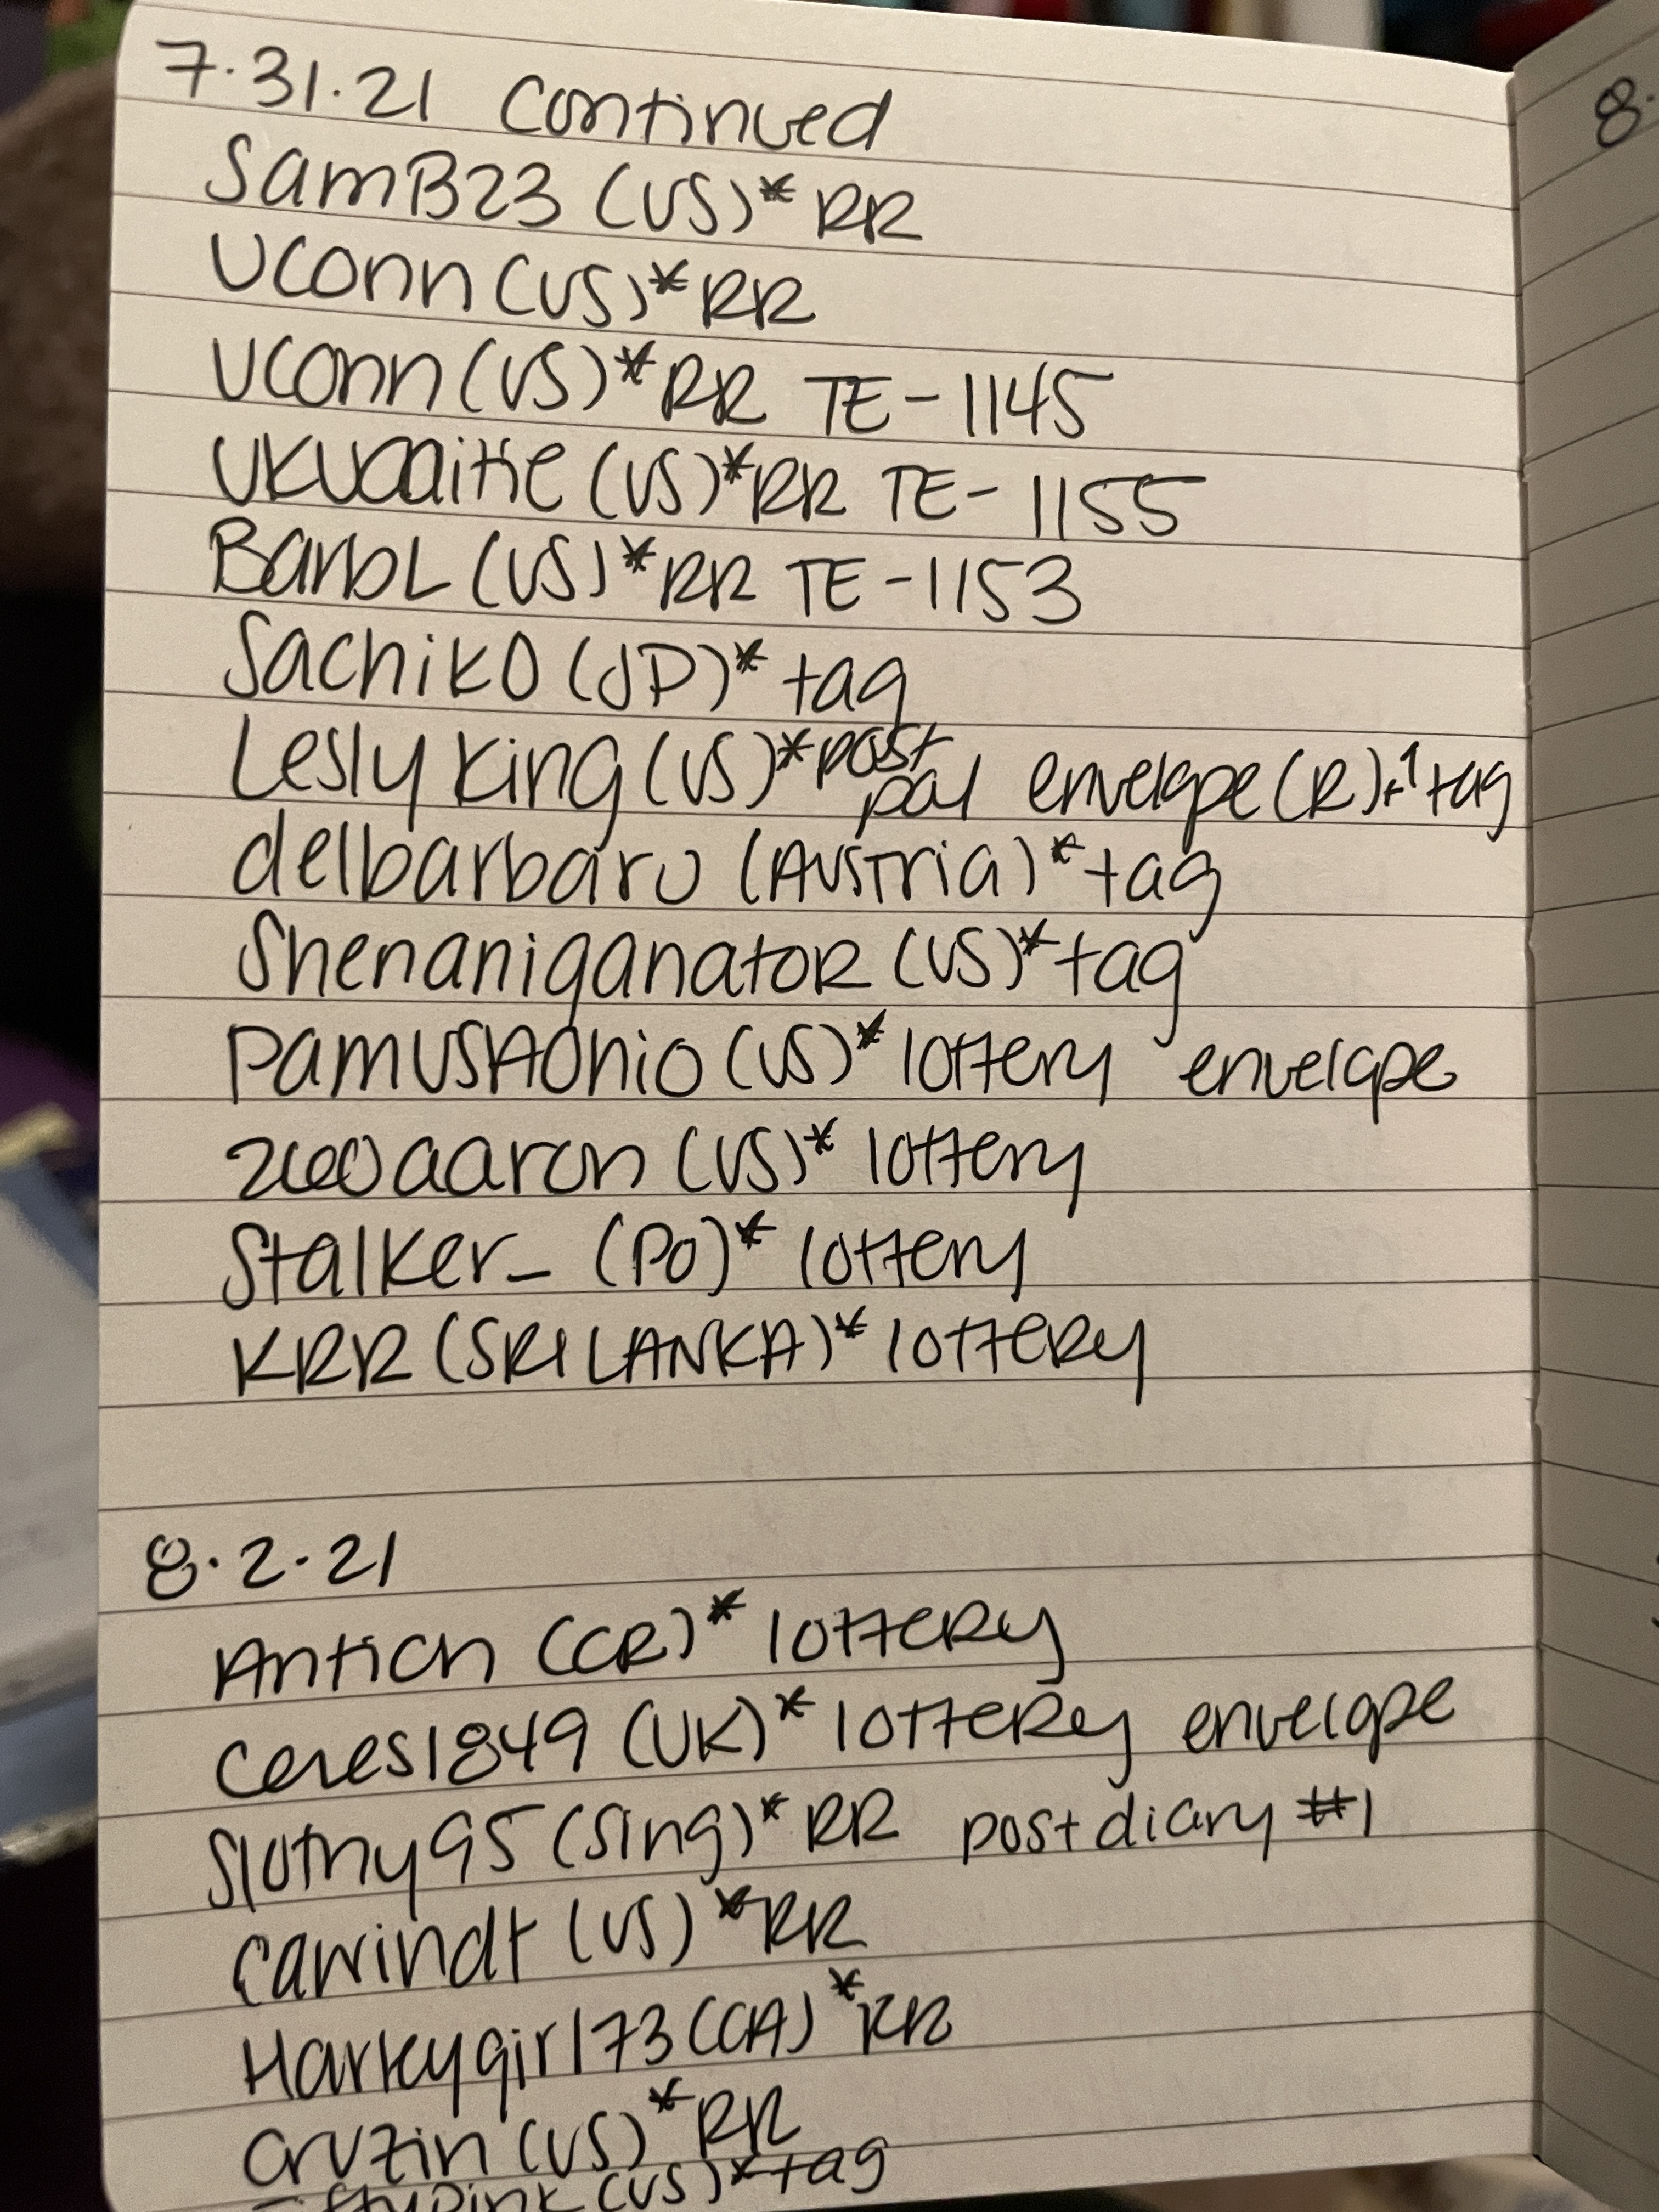 7.31.21 Continued
SamB23 (US)* RR
UConn (US)* RR
UConn (US)* RR TE-1145
(US)* RR TE-1155
BarbL (US)* RR TE-1153
Sachiko (JP)* tag
Lesly King (US)* post pal envelope (R)+1 tag
delbarbaru (Austria)* tag
ShenaniganatoR (US)* tag
PamUSAOhio (US)* lottery envelope
aaron (US)* lottery
Stalker_ (PO)* lottery
KRR (SRI LANKA)* lotteRy
8.2.21
Antich (CR)* lotteRy
Ceres1849 (UK)* lotteRy envelope
Slothy95 (Sing)* RR post diary #1
(US)* RR
Harleygirl73 (CA)* RR
Cruzin (US)* RR
(US)* tag
8.